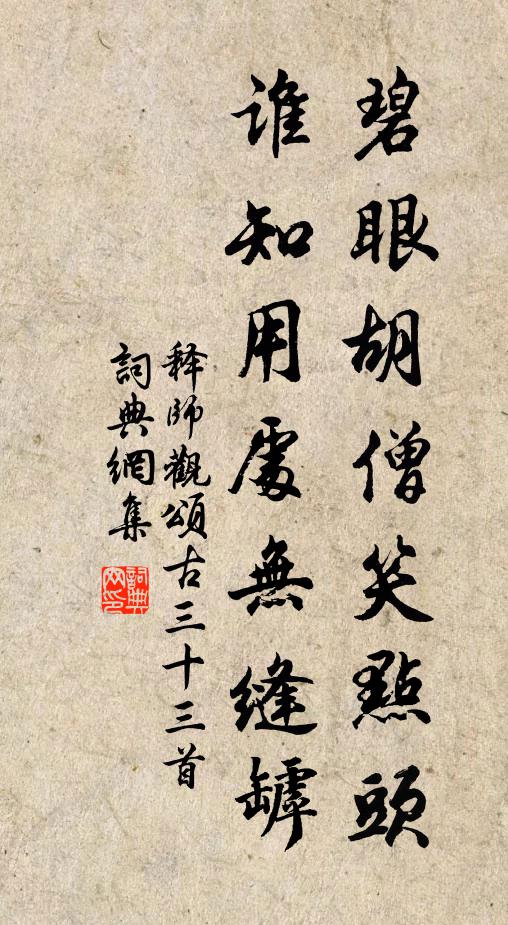 碧眼胡僧笑點頭
誰知用處無縫罅
释師觀頌古三十三首
詞典網集
詞典
网印